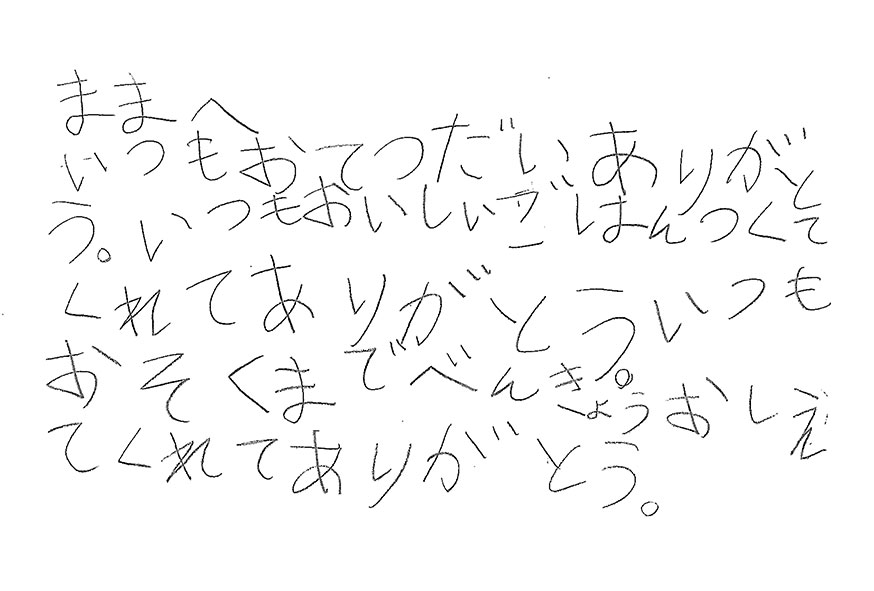 ままへ
いつもおてつだいありがと
う。いつもおいしいごはんつくて
くれてありがとういつも
おそくまでべんきょうおしえ
てくれてありがとう。